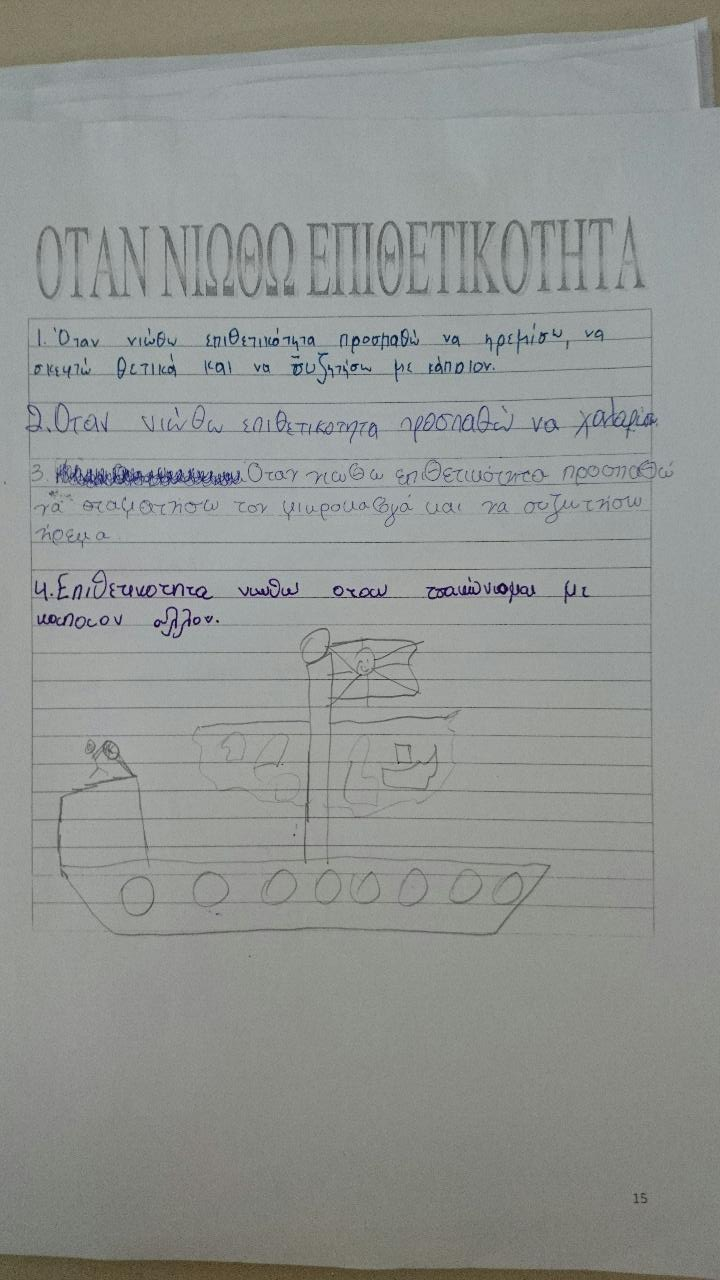 ΟΤΑΝ ΝΙΩΘΩ ΕΠΙΘΕΤΙΚΟΤΗΤΑ
1. Όταν νιώθω επιθετικότητα προσπαθώ να ηρεμίσω, να
σκεφτώ θετικά και να συζητήσω με κάποιον.
2. Οταν νιώθω επιθετικοτητα προσπαθώ να χαλαρώσω.
3. Οταν νιωθω επιθετικότητα προσπαθώ
να σταματησω τον μικροκαβγά και να συζητησω
ήρεμα.
4. Επιθετικοτητα νιωθω οταν τσακώνομαι με
καποιον αλλον.
15